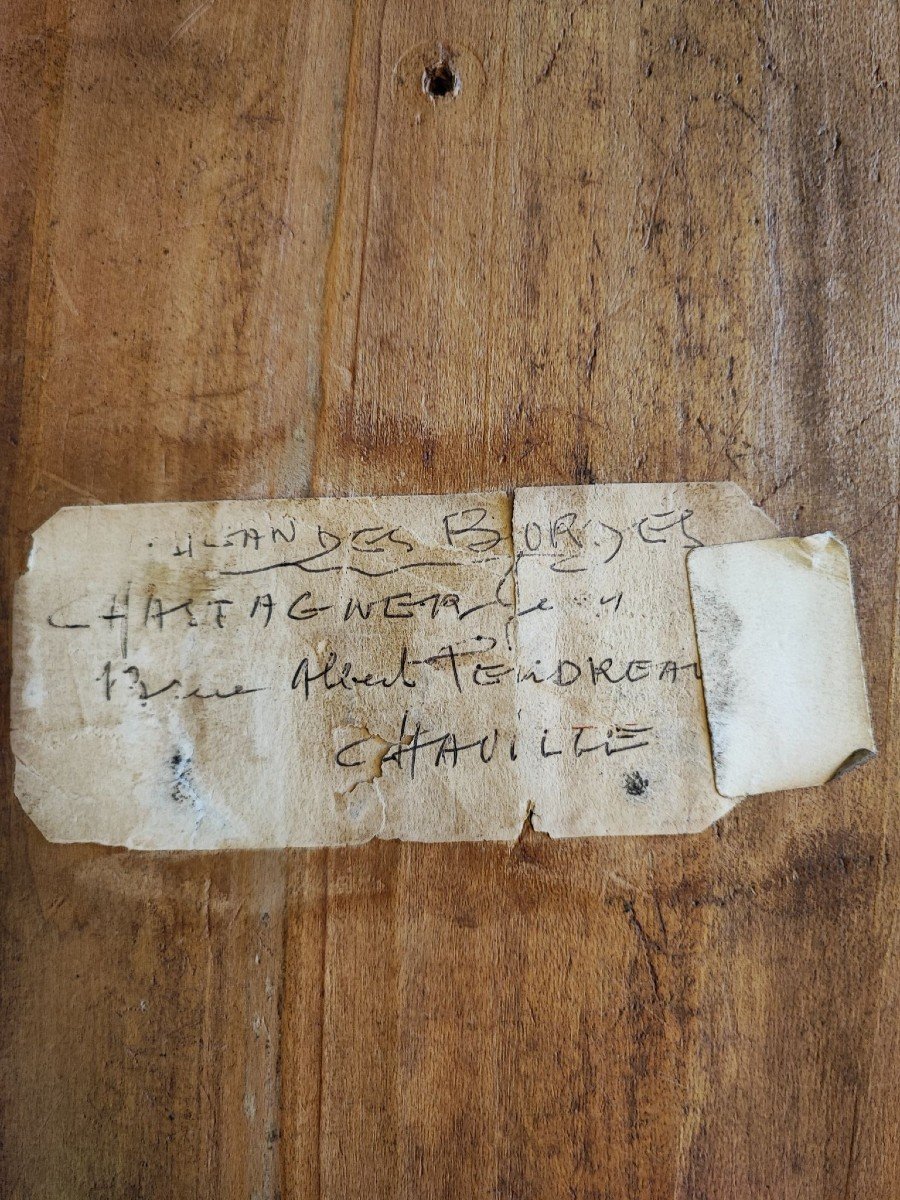 DES BORDES
CHASTAGNER
13 rue Albert PERDREAU
CHAVILLE